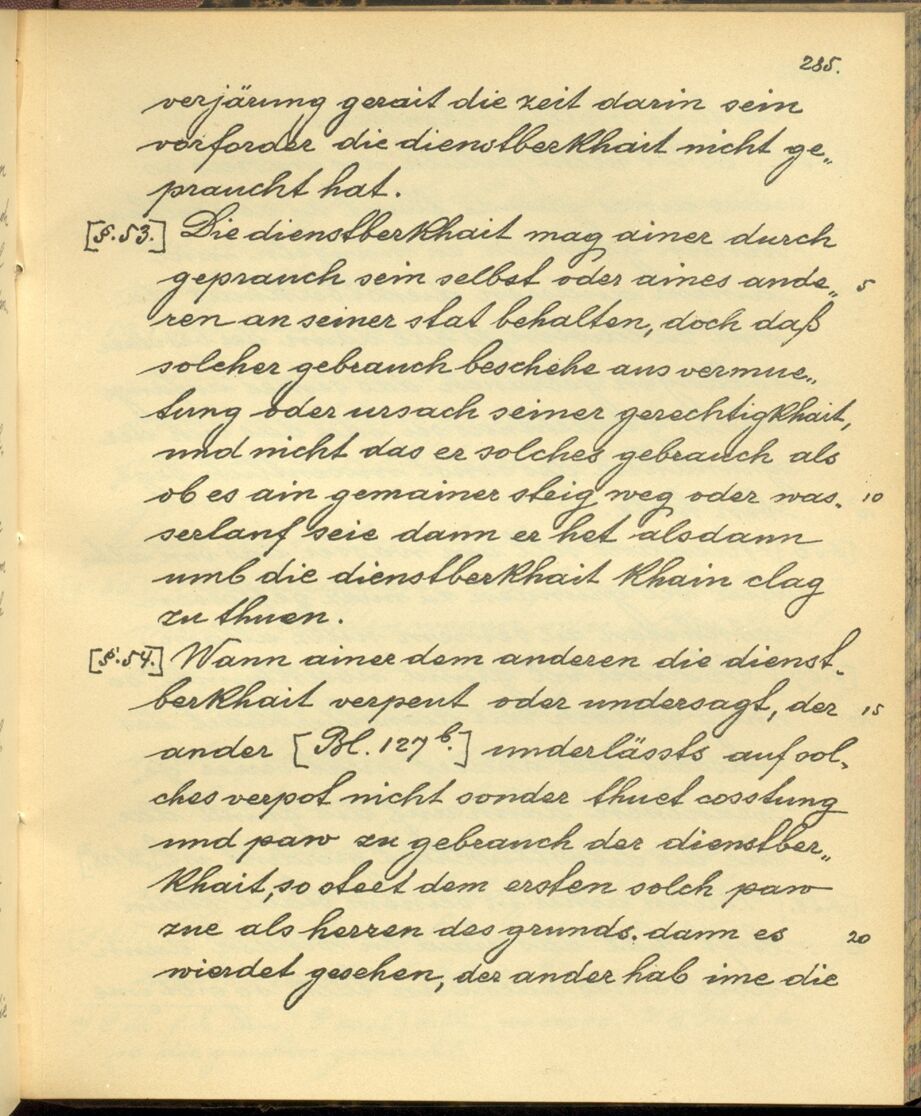 285.
verjärung gerait die zeit darin sein
vorforder die dienstberkhait nicht ge„
praucht hat.
[§.53.] Die dienstberkhait mag ainer durch
geprauch sein selbst oder aines ande„ 5
ren an seiner stat behalten, doch daß
solcher gebrauch beschehe aus vermue„
tung oder ursach seiner gerechtigkhait,
und nicht das er solches gebrauch als
ob es ain gemainer steig weg oder was- 10
serlauf seie dann er het alsdann
umb die dienstberkhait khain clag
zu thuen.
[§.54.] Wann ainer dem anderen die dienst-
berkhait verpeut oder undersagt, der 15
ander [Bl. 127 b.] underlässts auf sol-
ches verpot nicht sonder thuet cosstung
und paw zu gebrauch der dienstber„
khait, so steet dem ersten solch paw
zue als herren des grunds. dann es 20
wierdet gesehen, der ander hab ime die